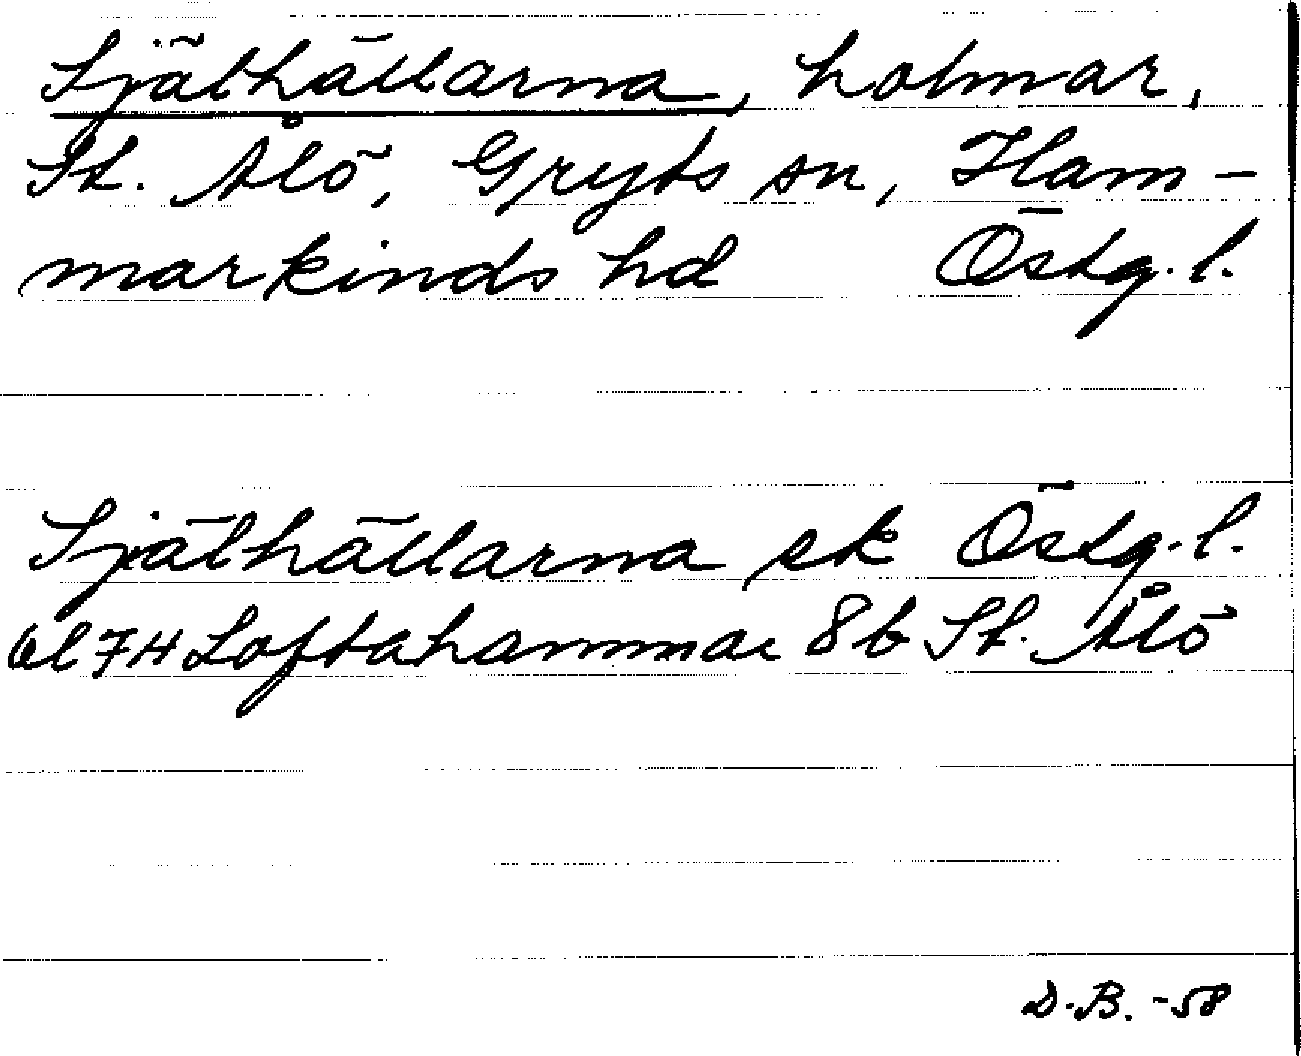 Själhällarna, holmar,
St. Ålö, Gryts sn, Ham-
markinds hd Östg. l.
Själhällarna ek Östg. l.
bl 74 Loftahammar 8b St. Ålö
D.B. -58